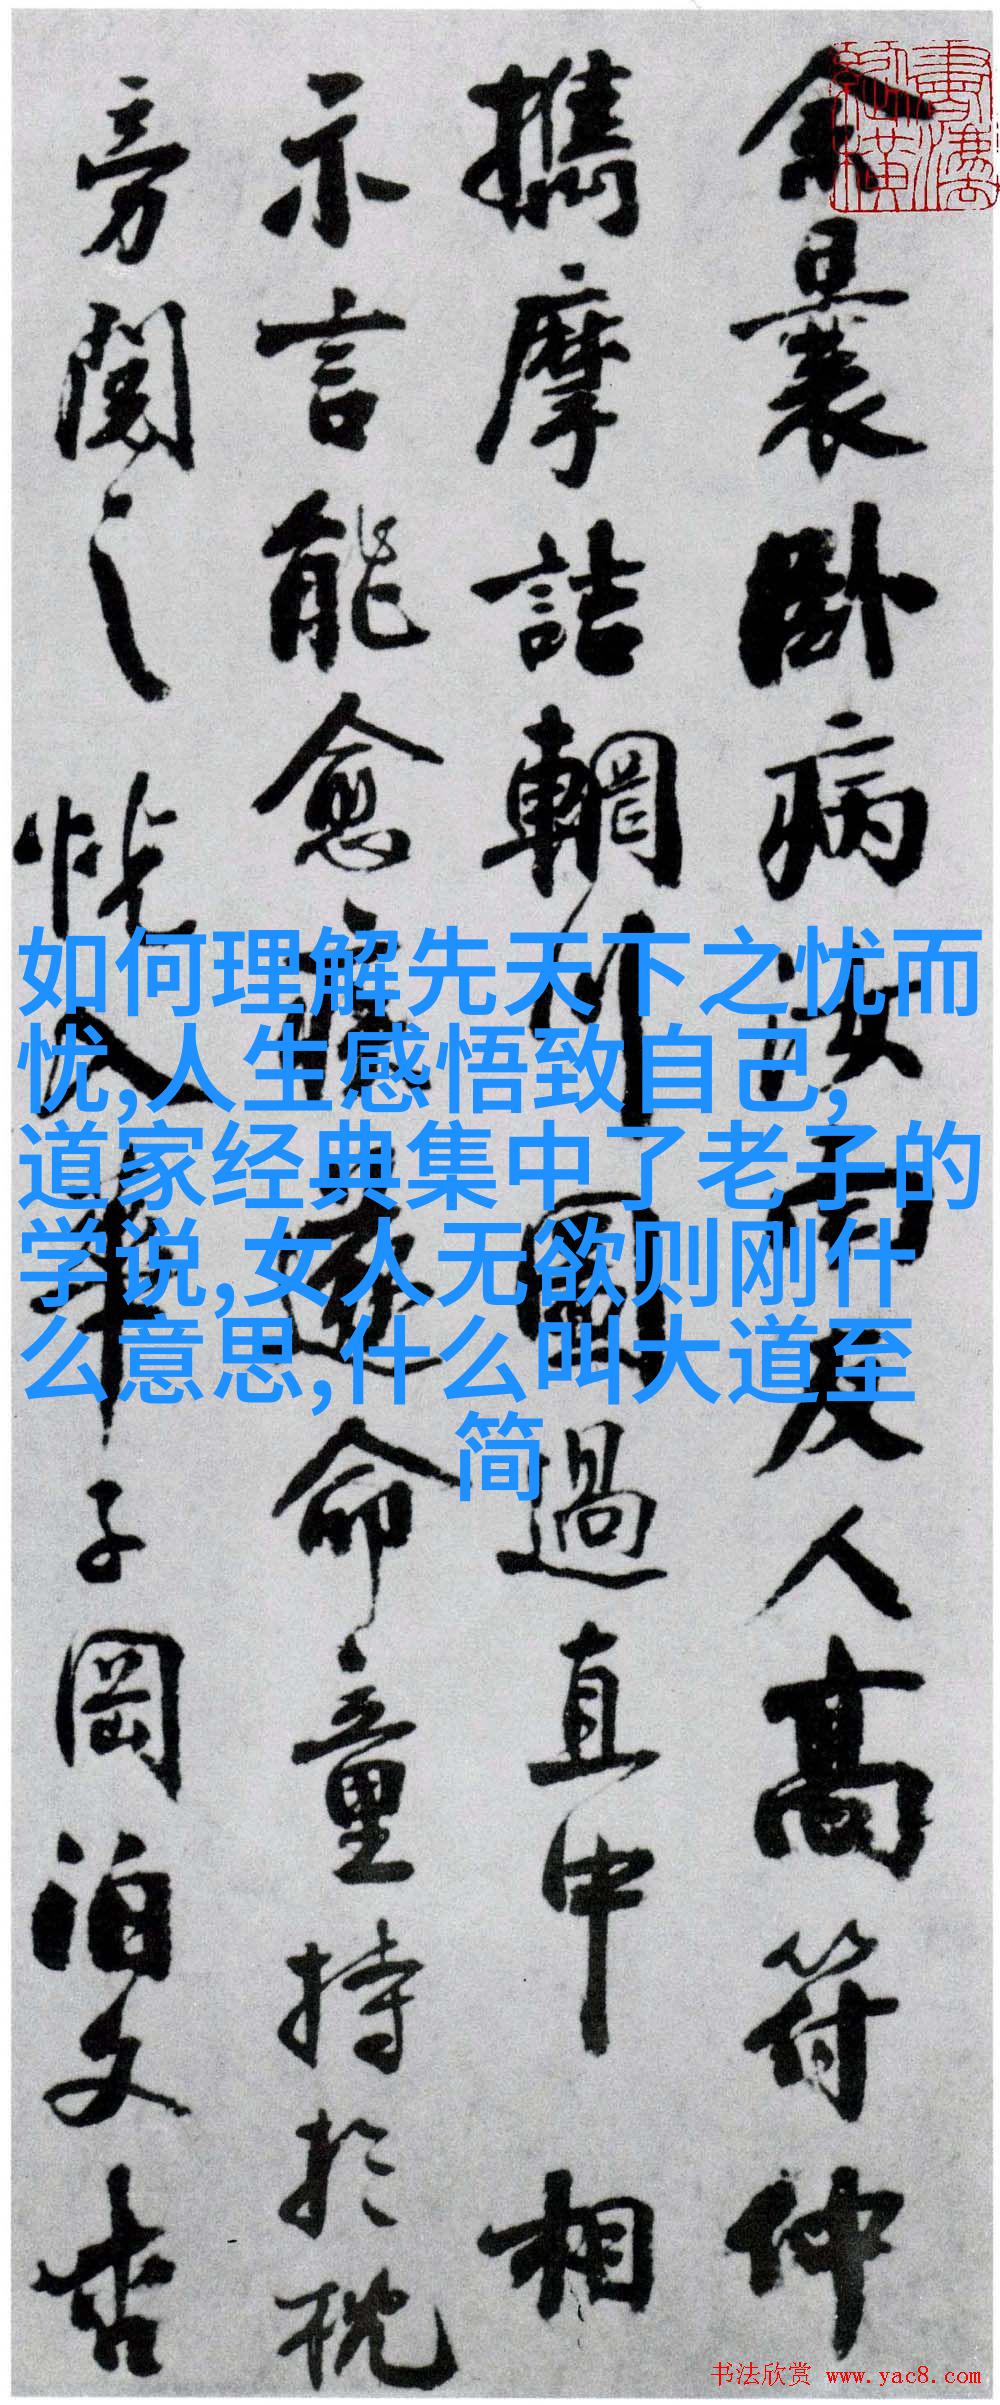 余曩卧病汝南友人高符仲
攜摩詰輞川圖過直中相
示言能愈疾遂命童持於枕
旁閱之恍入華子岡泊文杏
如何理解先天下之忧而
忧,人生感悟致自己,
道家经典集中了老子的
学说,女人无欲则刚什
么意思,什么叫大道至
简
书法欣赏 www.yac8.com